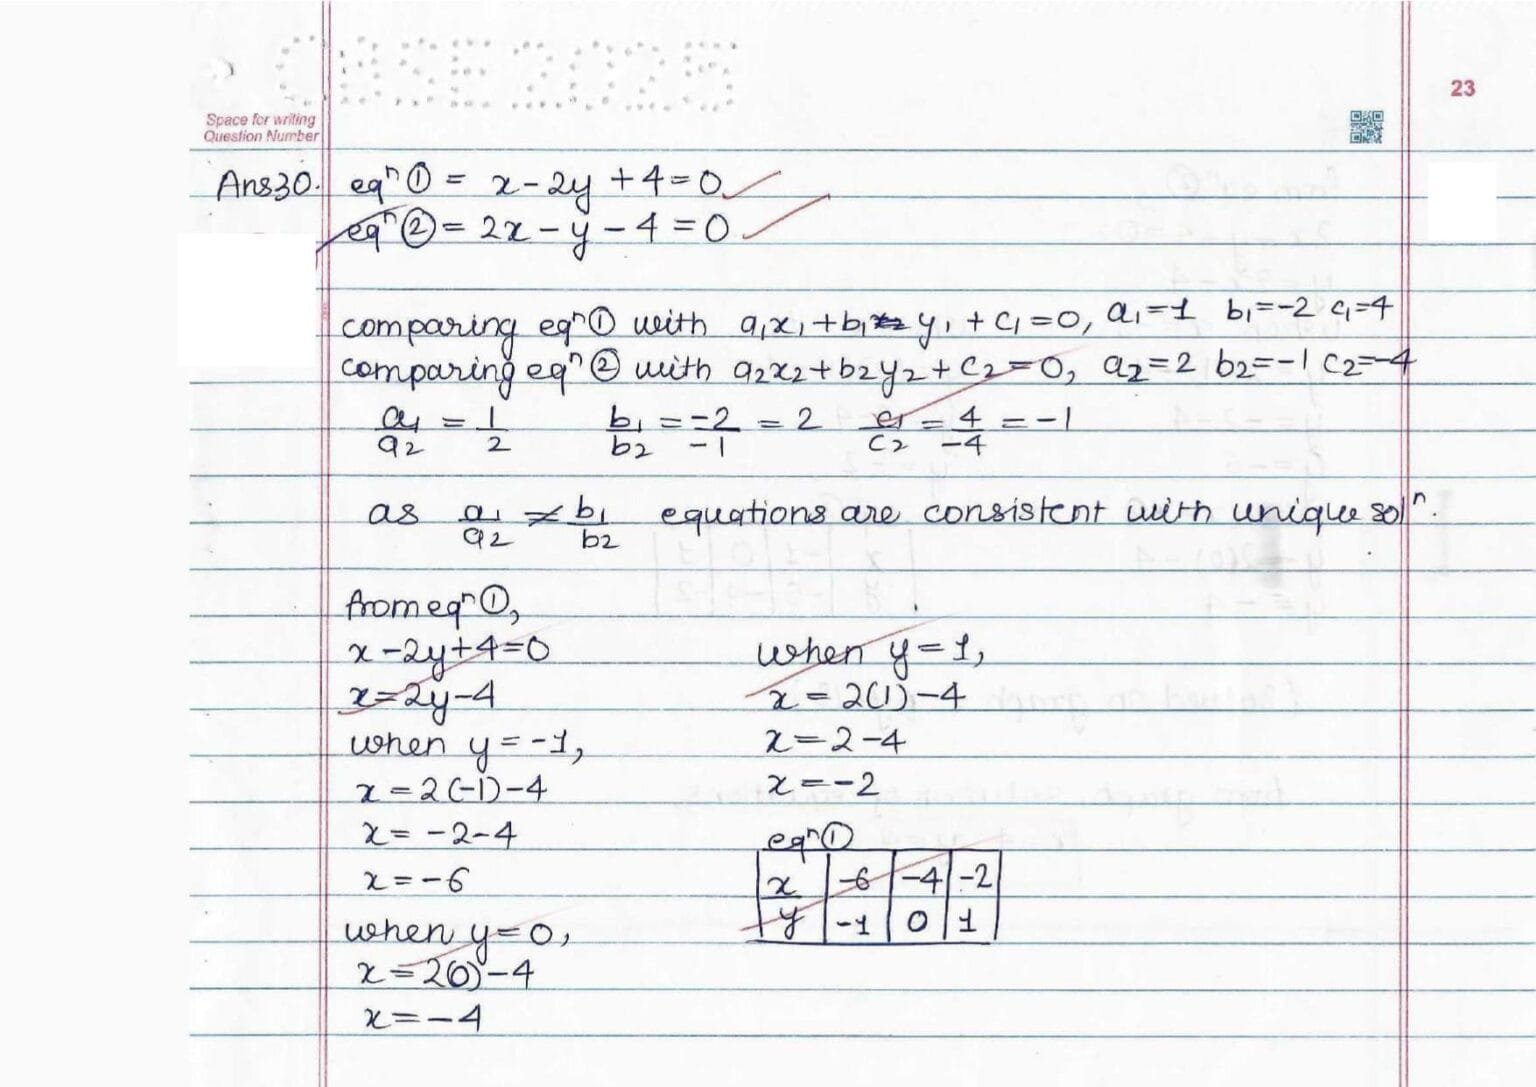 CBSE 2025
23
Space for writing
Question Number
Ans30. eqⁿ① = x - 2y + 4 = 0
eqⁿ② = 2x - y - 4 = 0
comparing eqⁿ① with a₁x₁ + b₁y₁ + c₁ = 0, a₁=1 b₁=-2 c₁=4
comparing eqⁿ② with a₂x₂ + b₂y₂ + c₂ = 0, a₂=2 b₂=-1 c₂=-4
a₁/a₂ = 1/2 b₁/b₂ = -2/-1 = 2 c₁/c₂ = 4/-4 = -1
as a₁/a₂ ≠ b₁/b₂ equations are consistent with unique solⁿ.
from eqⁿ①,
x - 2y + 4 = 0
x = 2y - 4
when y = -1,
x = 2(-1) - 4
x = -2 - 4
x = -6
when y = 0,
x = 2(0) - 4
x = -4
when y = 1,
x = 2(1) - 4
x = 2 - 4
x = -2
eqⁿ①
x -6 -4 -2
y -1 0 1